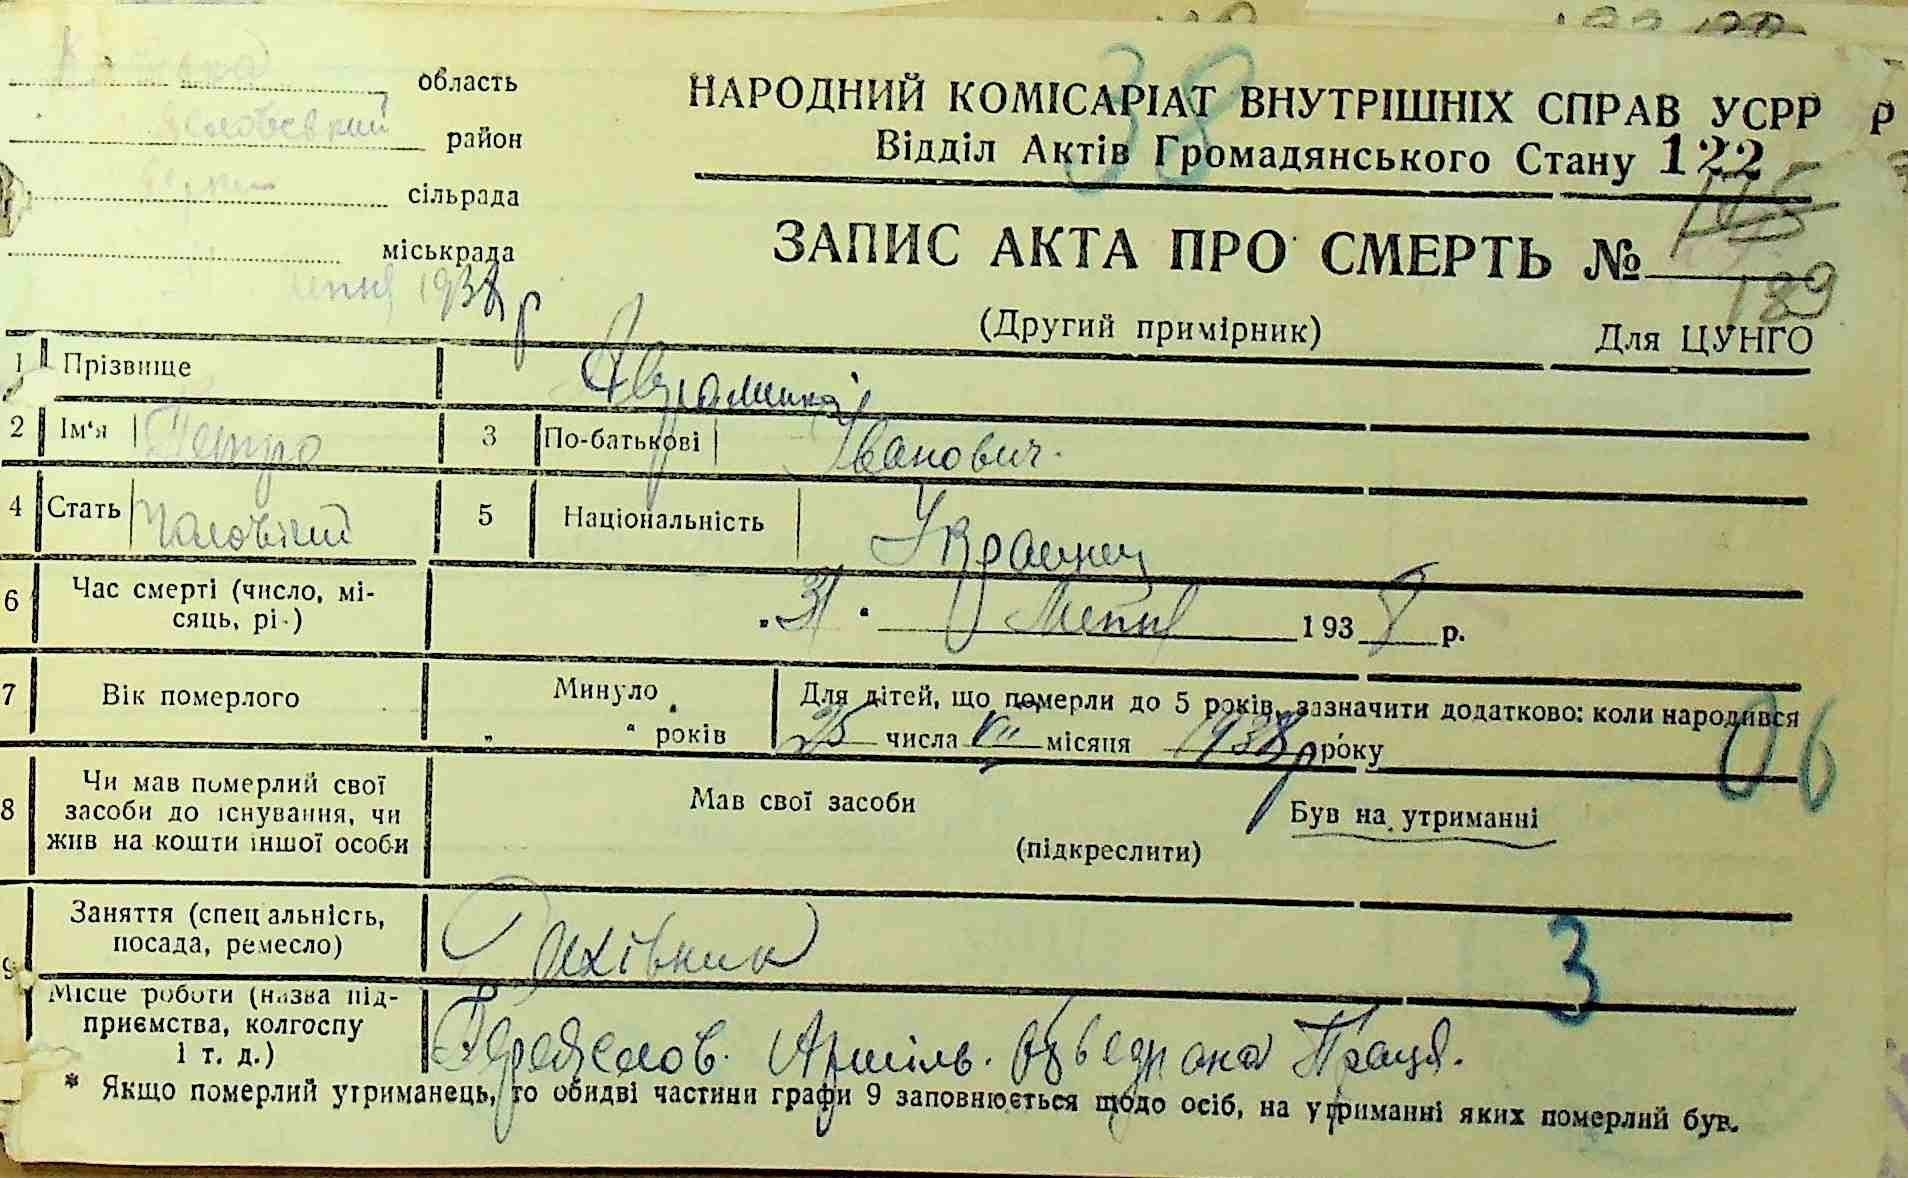 область
район
сільрада
міськрада
38
НАРОДНИЙ КОМІСАРІАТ ВНУТРІШНІХ СПРАВ УСРР
Відділ Актів Громадянського Стану 122
ЗАПИС АКТА ПРО СМЕРТЬ №
189
липня 1938 р
(Другий примірник) Для ЦУНГО
1 Прізвище
2 Ім'я Петро 3 По-батькові Іванович.
4 Стать Чоловічий 5 Національність Українец
6 Час смерті (число, мі-
сяць, рі-) „31" Липня 1938 р.
7 Вік померлого Минуло
" " років
Для дітей, що померли до 5 років, зазначити додатково: коли народився
25 числа VII місяця 1938р року
06
8 Чи мав померлий свої
засоби до існування, чи
жив на кошти іншої особи
Мав свої засоби Був на утриманні
(підкреслити)
9 Заняття (спец альність,
посада, ремесло)
3
Місце роботи (назва під-
приємства, колгоспу
і т. д.)
Артіль. Праця.
* Якщо померлий утриманець, то обидві частини графи 9 заповнюється щодо осіб, на утриманні яких померлий був.